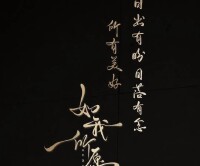 日出有盼日落有念
所有美好
如我所愿